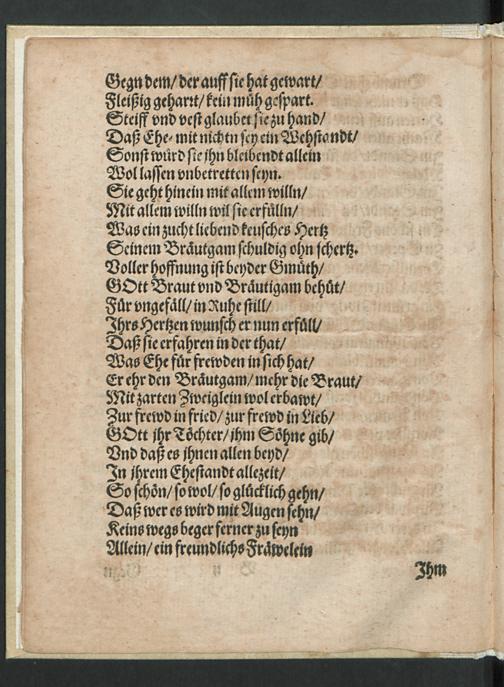 Gegn dem/ der auff sie hat gewart/
Fleißig geharrt/ kein müh gespart.
Steiff vnd vest glaubet sie zu hand/
Daß Ehe- mit nichtn sey ein Wehstandt/
Sonst würd sie ihn bleibendt allein
Wol lassen vnbetretten seyn.
Sie geht hinein mit allem willn/
Mit allem willn wil sie erfülln/
Was ein zucht liebend keusches Hertz
Seinem Bräutgam schuldig ohn schertz.
Voller hoffnung ist beyder Gmüth/
GOtt Braut vnd Bräutigam behüt/
Für vngefäll/ in Ruhe still/
Ihrs Hertzen wunsch er nun erfüll/
Daß sie erfahren in der that/
Was Ehe für frewden in sich hat/
Er ehr den Bräutgam/ mehr die Braut/
Mit zarten Zweiglein wol erbawt/
Zur frewd in fried/ zur frewd in Lieb/
GOtt jhr Töchter/ jhm Söhne gib/
Vnd daß es jhnen allen beyd/
In jhrem Ehestandt allezeit/
So schön/ so wol/ so glücklich gehn/
Daß wer es wird mit Augen sehn/
Keins wegs beger ferner zu seyn
Allein/ ein freundlichs Fräwelein
Ihm